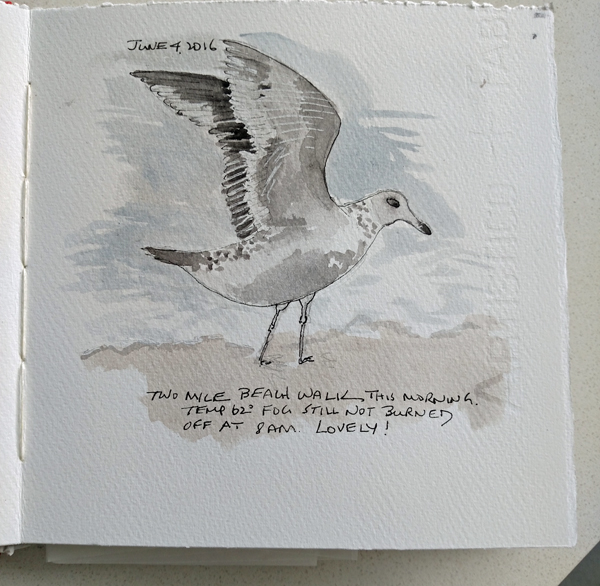 JUNE 4, 2016
TWO MILE BEACH WALK THIS MORNING.
TEMP 62° FOG STILL NOT BURNED
OFF AT 8AM. LOVELY!